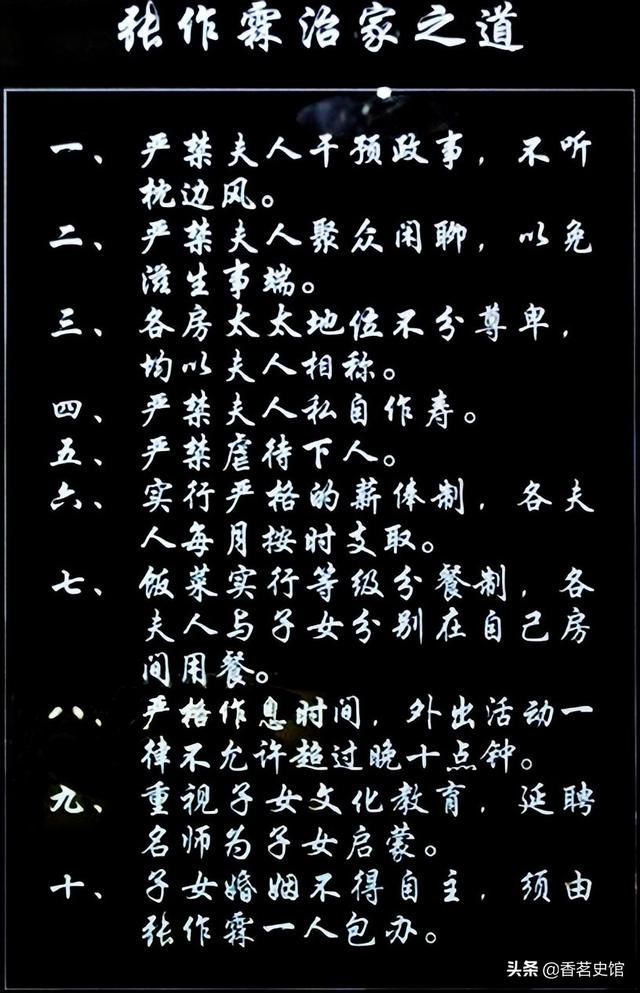 张作霖治家之道
一、严禁夫人干预政事，不听
枕边风。
二、严禁夫人聚众闲聊，以免
滋生事端。
三、各房太太地位不分尊卑，
均以夫人相称。
四、严禁夫人私自作寿。
五、严禁虐待下人。
六、实行严格的薪俸制，各夫
人每月按时支取。
七、饭菜实行等级分餐制，各
夫人与子女分别在自己房
间用餐。
八、严格作息时间，外出活动一
律不允许超过晚十点钟。
九、重视子女文化教育，延聘
名师为子女启蒙。
十、子女婚姻不得自主，须由
张作霖一人包办。
头条 @香茗史馆